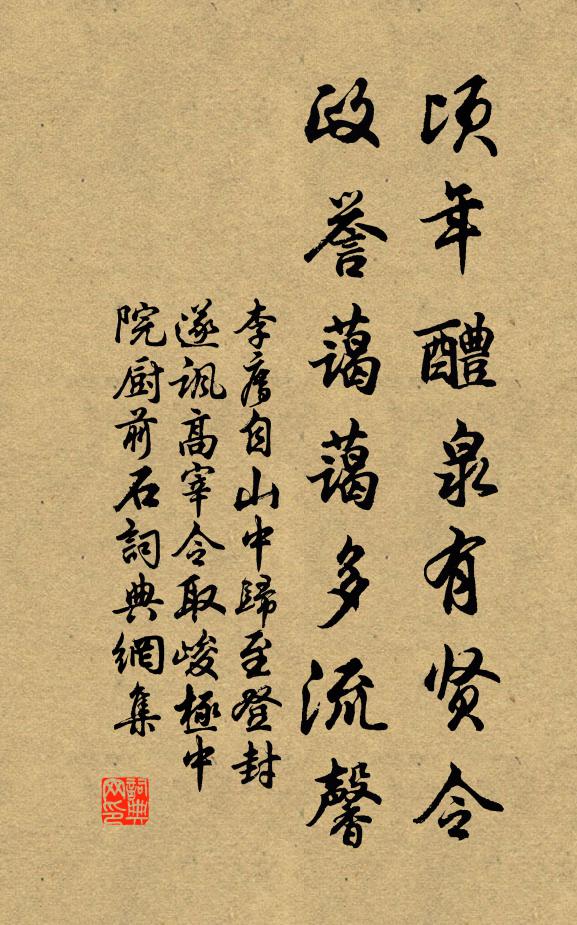 頃年醴泉有贤令
政誉藹藹多流馨
李廌自山中歸至登封
遂訊高宰令取峻極中
院厨前石詞典網集
詞典网印